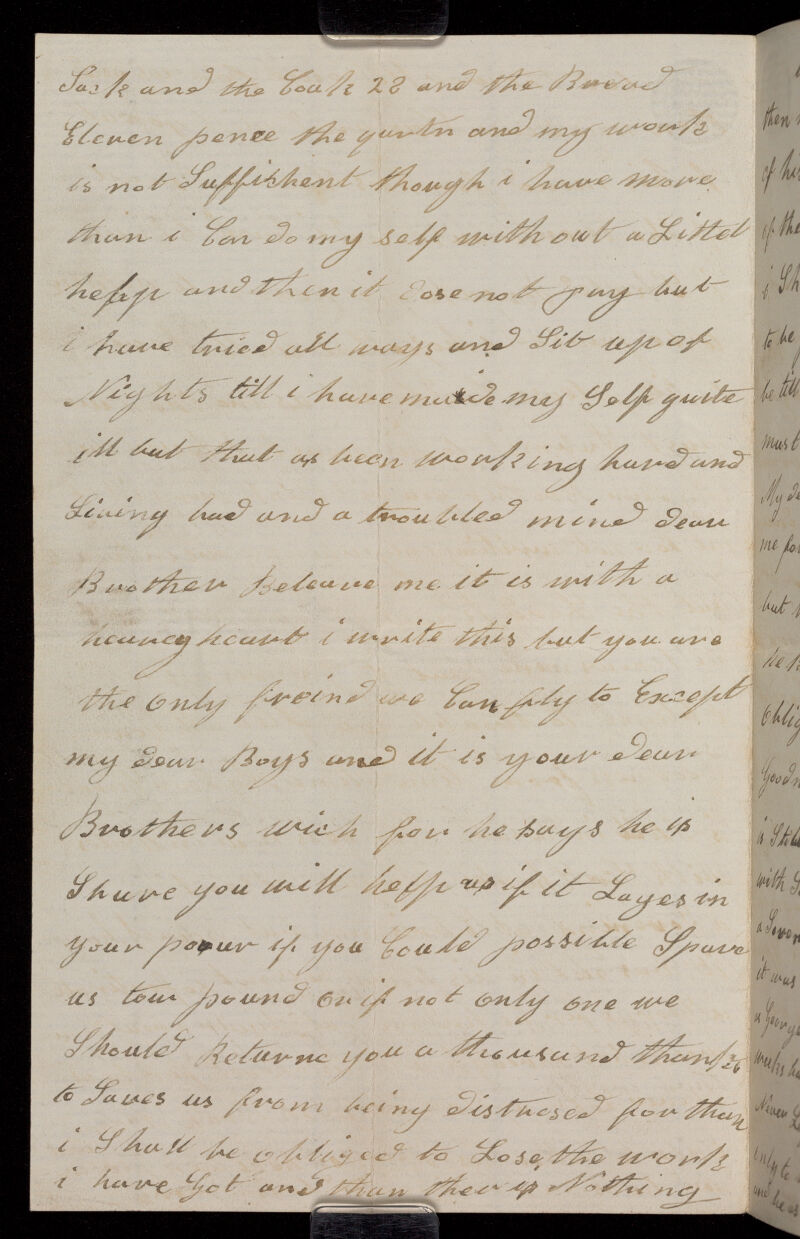 Sack and the Coak 28 and the Bread
Eleven pence the qurtn and my work
is not Suffishent though i have more
than i Can do my self with out a Littel
help and then it Dose not pay but
i have tried all ways and Sit up of
Nights till i have maide my Self quite
ill but that as been working hard and
Living bad and a troubled mind dear
Brother Beleave me it is with a
heavey heart i write this but you are
the only freind we Can fly to Except
my dear Boys and it is your dear
Brothers wich for he says he is
Shure you will help us if it Layes in
your power if you Could possible Spare
us tow pound or if not only one we
Should Returne you a thousand thanks
to Saves us from being distresed for than
i Shall be obliged to Lose the work
i have Got and than ther is Nothing
then
of his
of the
i Sh
to be
be till
must
My de
me for
but
oblig
Good
with
it was
as George
weeks
Never
only to
and he as